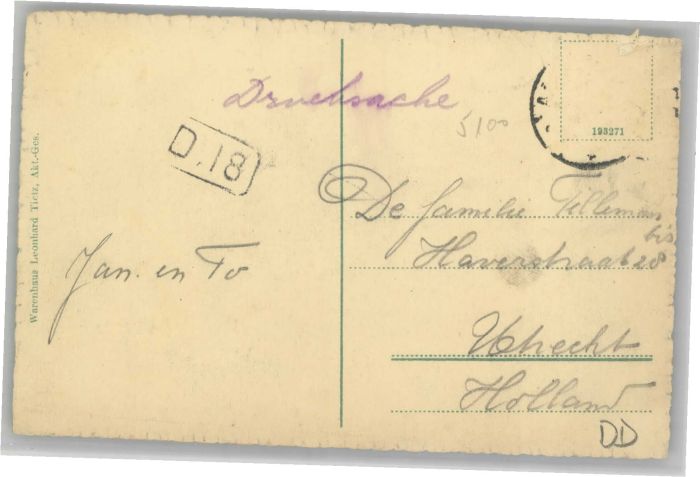 Drucksache
5/00
193271
D.18
De familie Tilleman
bis
Haverstraat 28
Jan. en To
Utrecht
Holland
DD
Warenhaus Leonhard Tietz, Akt.-Ges.